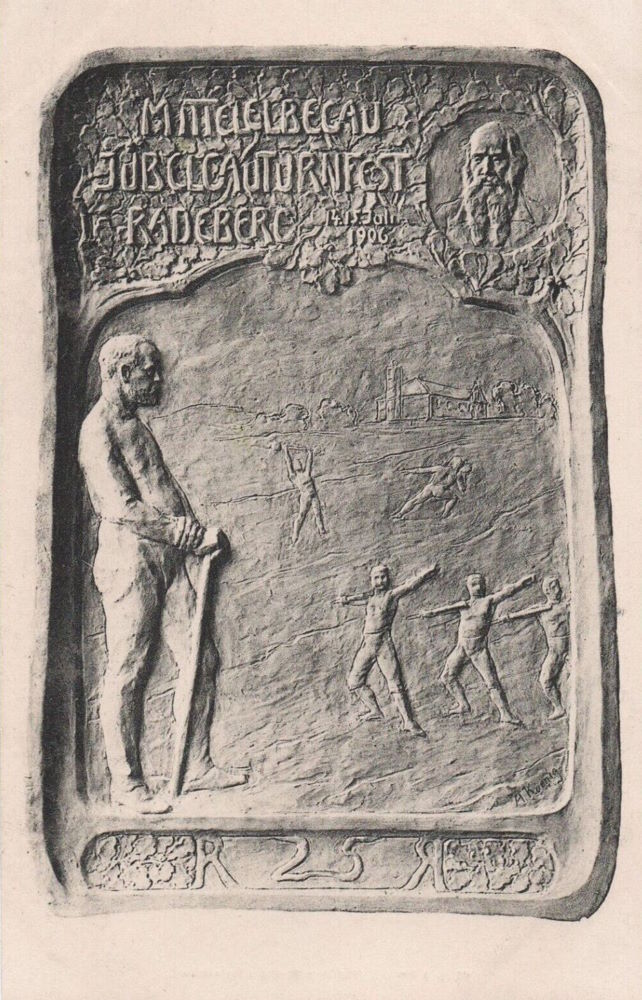 MITTELELBEGAU
JUBELGAUTURNFEST
RADEBERG 14.15.Juli
1906
A Koenig
R 25 R